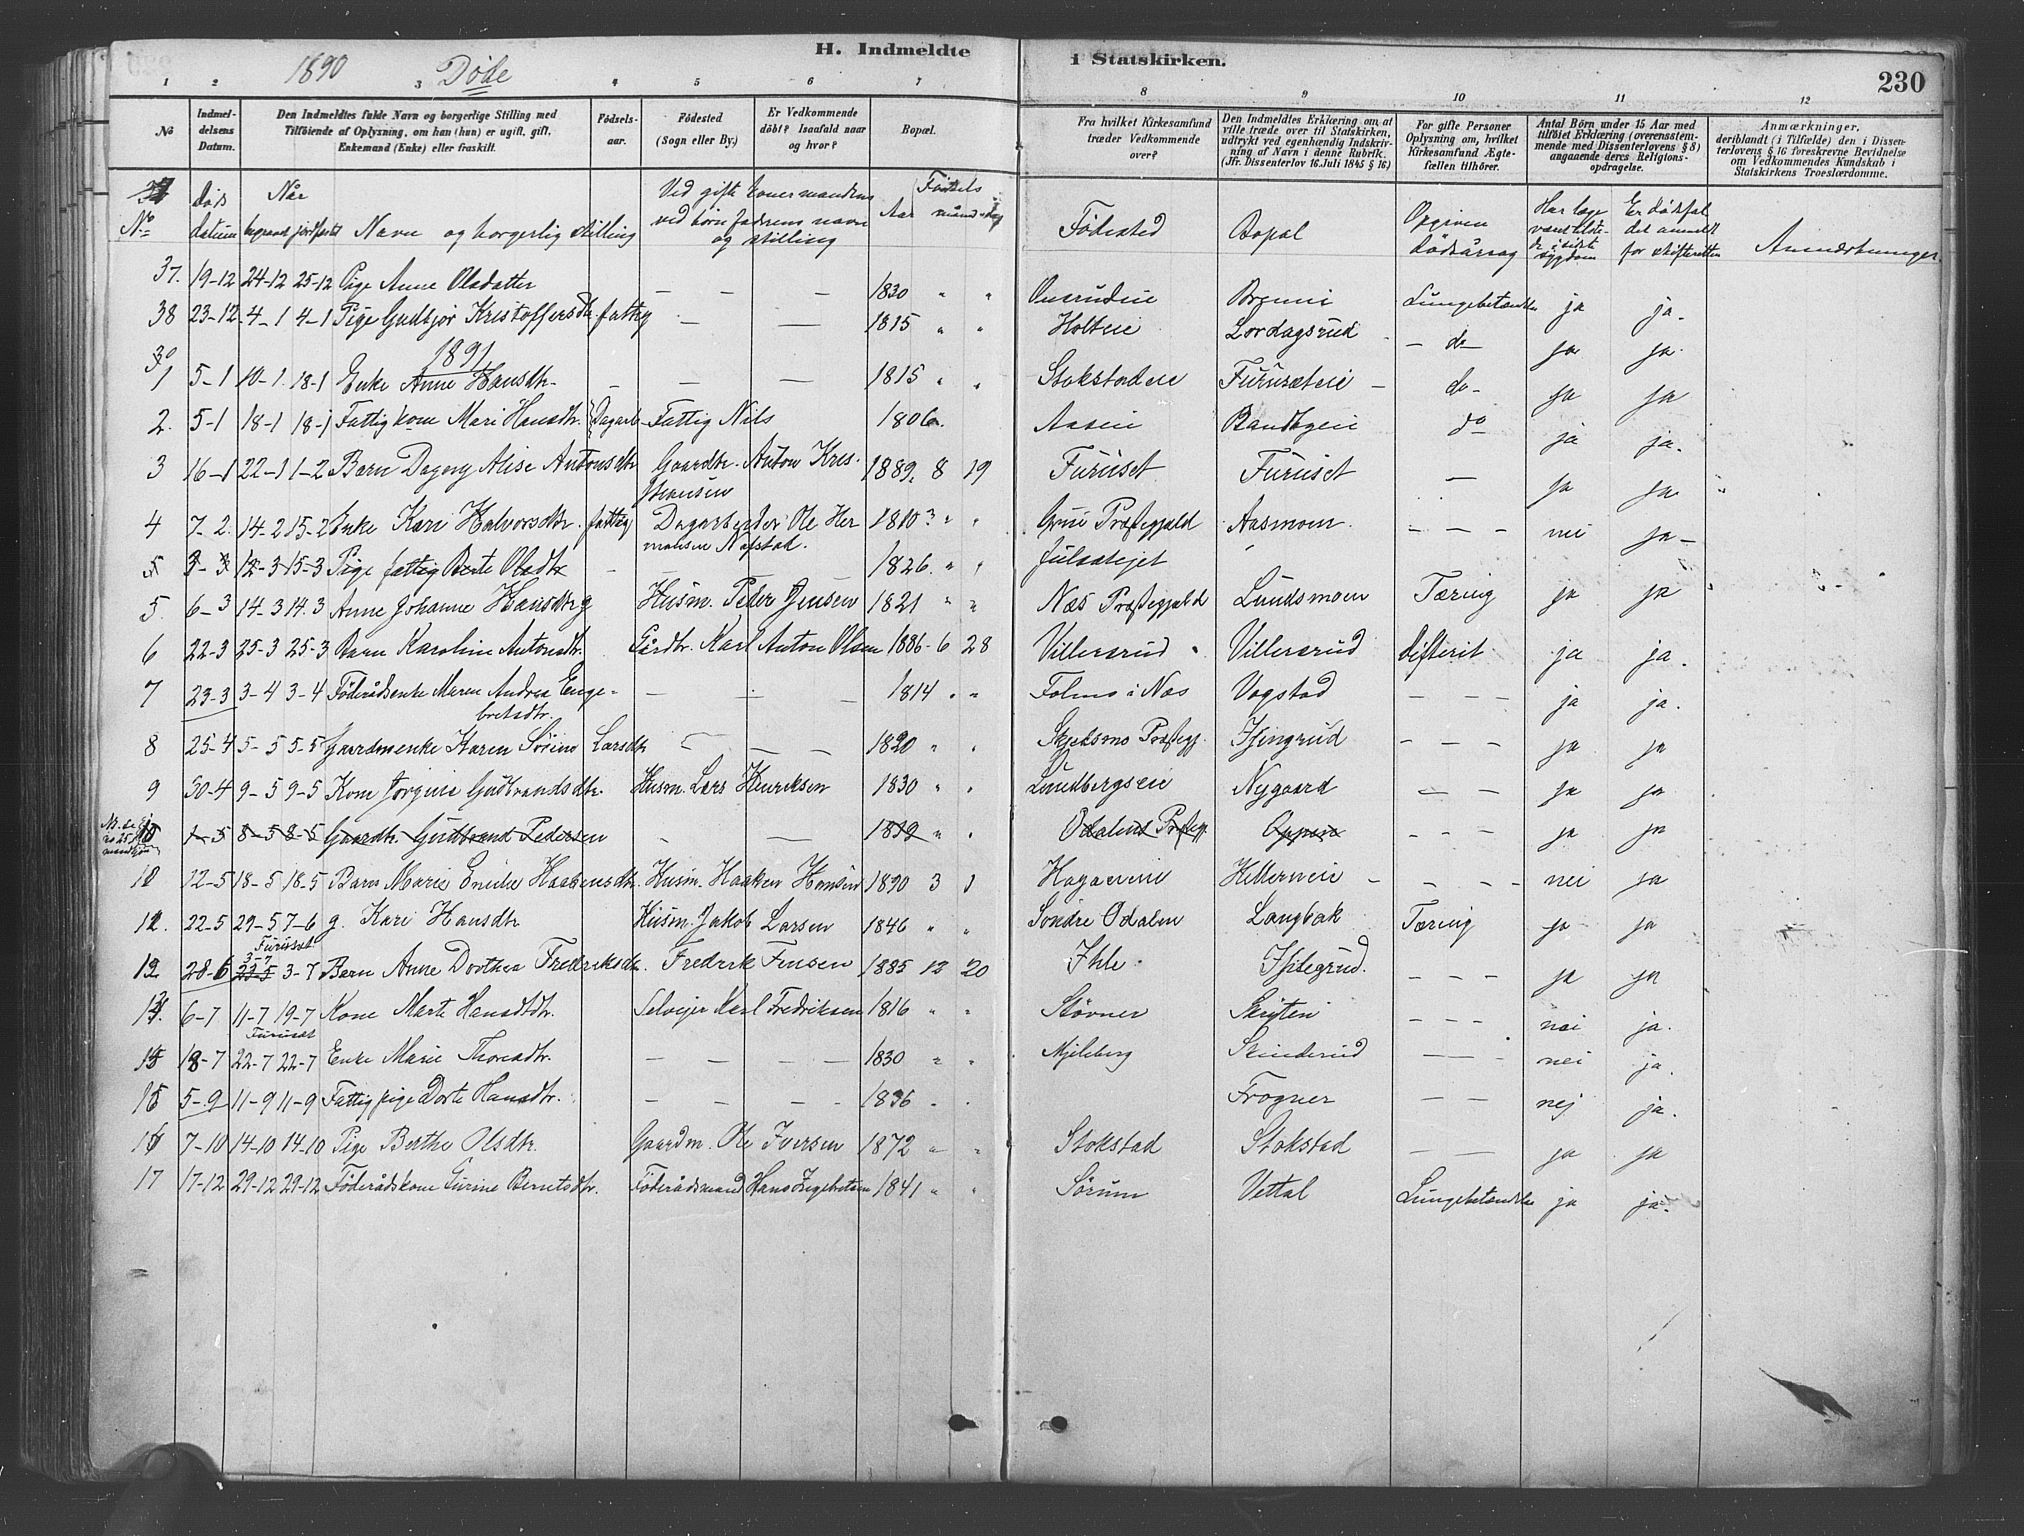 H. Indmeldte i Statskirken.
230
1890 Döde
1 2 3 4 5 6 7 8 9 10 11 12
No
Indmeldelsens Datum.
Den Indmeldtes fulde Navn og borgerlige Stilling med Tilföiende af Oplysning, om han (hun) er ugift, gift, Enkemand (Enke) eller fraskilt.
Födselsaar.
Födested (Sogn eller By.)
Er Vedkommende döbt? Isaafald naar og hvor?
Bopæl.
Fra hvilket Kirkesamfund træder Vedkommende over?
Den Indmeldtes Erklæring om at ville træde over til Statskirken, udtrykt ved egenhændig Indskrivning af Navn i denne Rubrik. (Jfr. Dissenterlov 16 Juli 1845 § 16)
For gifte Personer Oplysning om, hvilket Kirkesamfund Ægtefællen tilhörer.
Antal Börn under 15 Aar med tilföiet Erklæring (overensstemmende med Dissenterlovens § 8) angaaende deres Religionsopdragelse.
Anmærkninger, deriblandt (i Tilfælde) den i Dissenterlovens § 16 foreskrevne Bevidnelse om Vedkommendes Kundskab i Statskirkens Troeslærdomme.
No Döds datum Når begravet jordfæstet Navn og borgerlig stilling Ved gifte koner mandens ved börn faderens navn og stilling Aar Födsels måned dag Födested Bopæl Opgiven dödsårsag Har læge været tilstede i sidste sygdom Er dödsfaldet anmeldt for skifteretten Anmærkninger
37. 19-12 24-12 25-12 Pige Anne Olsdatter — — — 1830 " " Brenni Lungebetændelse ja ja.
38 23-12 4-1 4-1 Pige Gudbjör Kristoffersdtr fattig — — 1815 " " Holteie Lördagsrud do ja ja.
1891
1 5-1 10-1 18-1 Enke Anne Hansdtr — — — 1815 " " Stokstadeie Furuseteie do ja ja
2. 5-1 18-1 18-1 Fattig kone Mari Hansdtr. Dagarb Fattig Nils 1806 Aaseie do ja ja.
3 16-1 22-1 1-2 Barn Dagny Alise Antonsdtr Gaardbr. Anton Kristiansen 1889. 8 19 Furuset Furuset — ja ja
4 7-2 14-2 15-2 Enke Kari Halvorsdtr. fattig Dagarbeider Ole Hermansen Nafstad. 1810 3 " " Grue Præstegjæld Aasmoen. — — — nei ja
5 3-3 12-3 15-3 Pige fattig Berte Olsdtr — — 1826. " "
5. 6-3 14-3 14-3 Anne Johanne Hansdtr g Husm. Peder Jensen 1821 " " Næs Præstegjæld Lundsmoen Tæring ja ja
6 22-3 25-3 25-3 Barn Karoline Antonsdtr. Gårdbr. Karl Anton Olsen 1886 6 28 Villersrud Villersrud Difterit ja ja.
7 23-3 3-4 3-4 Föderådsenke Maren Andrea Engebretsdtr. — — — 1814 " " Folmo i Næs Vogstad — — — ja ja.
8 25-4 5-5 5-5 Gaardmenke Karen Sörine Larsdtr — — — 1820 " " Skjetsmo Præstegj. Isingrud — — — ja ja
9 30-4 9-5 9-5 Kone Jörgine Gudbrandsdtr. Husm. Lars Henriksen 1830 " " Lundbergseie Nygaard — — — ja ja
10 1-5 8-5 8-5 Gaardbr. Gudbrand Pedersen — — 1819 " " Odalens Præstegj. Oppen — — — ja ja
12-5 18-5 18-5 Barn Marie Emilie Haakensdtr. Husm. Haaken Hansen 1890 3 1 — — — nei ja
22-5 29-5 7-6 g. Kari Hansdtr Husm. Jakob Larsen 1846 " " Söndre Odalen Langbak Tæring ja ja
Furuset
12 28-6 3-7 3-7 Barn Anne Dorthea Fredriksdtr. Fredrik Jensen 1885 12 20 Ihle. — — — ja ja
6-7 11-7 19-7 Kone Marte Hansdtr. Selveier Karl Fredriksen 1816 " " Stövner — — — nei ja.
Furuset
18-7 22-7 22-7 Enke Marie Thoresdtr. — — — — 1830 " " Mjeleberg Skinderud — — — nei ja.
5-9 11-9 11-9 Fattig pige Dorte Hansdtr. — — — — 1836 " " Frogner — — nej ja.
16 7-10 14-10 14-10 Pige Berthe Olsdtr. Gaardm. Ole Iversen 1872 " " Stokstad Stokstad — — ja ja
17 17-12 29-12 29-12 Föderådskone Gurine Berntsdtr. Föderådsmand Hans Ingebretsen 1841 " " Sörum Vettal Lungebetændelse ja ja.